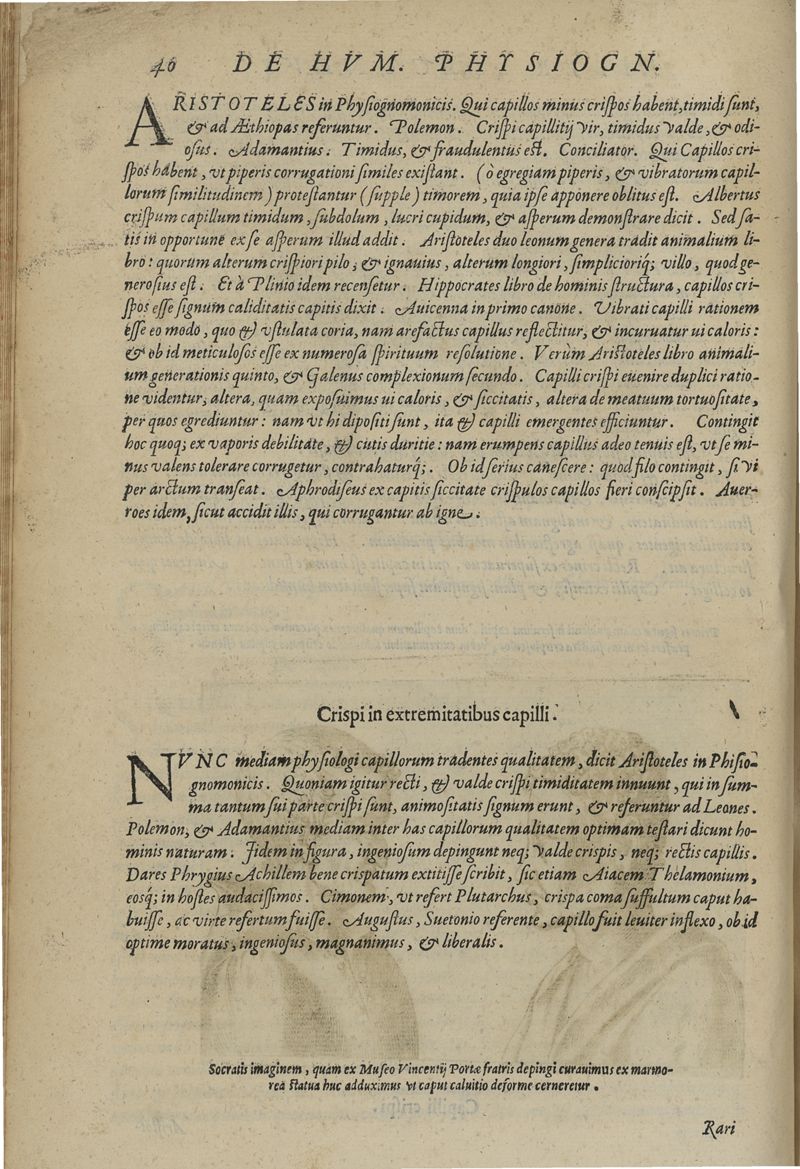 40 DE HVM. PHYSIOGN.
ARISTOTELES in Phyſiognomonicis. Qui capillos minus criſpos habent, timidi ſunt,
& ad Æthiopas referuntur. Polemon. Criſpi capillitij vir, timidus valde, & odi-
oſus. Adamantius: Timidus, & fraudulentus eſt. Conciliator. Qui Capillos cri-
ſpos habent, vt piperis corrugationi ſimiles exiſtant. (ò egregiam piperis, & vibratorum capil-
lorum ſimilitudinem) proteſtantur (ſupple) timorem, quia ipſe apponere oblitus eſt. Albertus
criſpum capillum timidum, ſubdolum, lucri cupidum, & aſperum demonſtrare dicit. Sed ſa-
tis in opportune ex ſe aſperum illud addit. Ariſtoteles duo leonum genera tradit animalium li-
bro: quorum alterum criſpiori pilo, & ignauius, alterum longiori, ſimplicioriq; villo, quod ge-
neroſius eſt. Et à Plinio idem recenſetur. Hippocrates libro de hominis ſtructura, capillos cri-
ſpos eſſe ſignum caliditatis capitis dixit. Auicenna in primo canone. Vibrati capilli rationem
eſſe eo modo, quo & vſtulata coria, nam arefactus capillus reflectitur, & incuruatur ui caloris:
& ob id meticuloſos eſſe ex numeroſa ſpirituum reſolutione. Verùm Ariſtoteles libro animali-
um generationis quinto, & Galenus complexionum ſecundo. Capilli criſpi euenire duplici ratio-
ne videntur, altera, quam expoſuimus ui caloris, & ſiccitatis, altera de meatuum tortuoſitate,
per quos egrediuntur: nam vt hi dipoſiti ſunt, ita & capilli emergentes efficiuntur. Contingit
hoc quoq; ex vaporis debilitate, & cutis duritie: nam erumpens capillus adeo tenuis eſt, vt ſe mi-
nus valens tolerare corrugetur, contrahaturq;. Ob id ſerius caneſcere: quod filo contingit, ſi vi
per arctum tranſeat. Aphrodiſeus ex capitis ſiccitate criſpulos capillos fieri conſcipſit. Auer-
roes idem, ſicut accidit illis, qui corrugantur ab igne.
Crispi in extremitatibus capilli.
NVNC mediam phyſiologi capillorum tradentes qualitatem, dicit Ariſtoteles in Phiſio-
gnomonicis. Quoniam igitur recti, & valde criſpi timiditatem innuunt, qui in ſum-
ma tantum ſui parte criſpi ſunt, animoſitatis ſignum erunt, & referuntur ad Leones.
Polemon, & Adamantius mediam inter has capillorum qualitatem optimam teſtari dicunt ho-
minis naturam. Iidem in figura, ingenioſum depingunt neq; valde crispis, neq; rectis capillis.
Dares Phrygius Achillem bene crispatum extitiſſe ſcribit, ſic etiam Aiacem Thelamonium,
eosq; in hoſtes audaciſſimos. Cimonem, vt refert Plutarchus, crispa coma ſuffultum caput ha-
buiſſe, ac virte refertum fuiſſe. Auguſtus, Suetonio referente, capillo fuit leuiter inflexo, ob id
optime moratus, ingenioſus, magnanimus, & liberalis.
Socratis imaginem, quam ex Muſeo Vincentij Portæ fratris depingi curauimus ex marmo-
rea ſtatua huc adduximus vt caput caluitio deforme cerneretur.
Rari